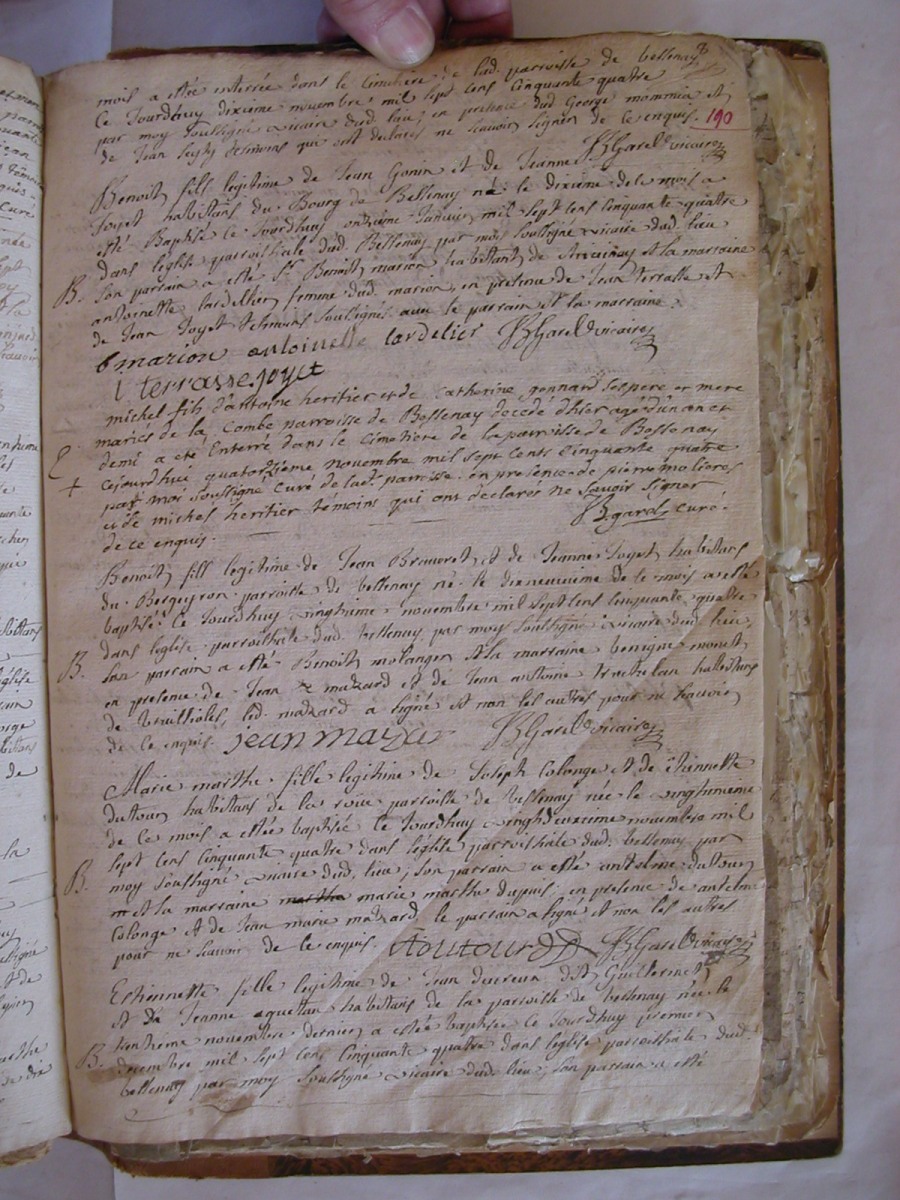 mois a estée enterrée dans le cimetière de lad. parroisse de bessenay
Ce Jourdhuy dixième novembre mil sept cens Cinquante quatre
par moy soussigné vicaire dud. lieu, en presence dud George mommia et
de Jean témoins qui ont declarés ne scavoir signer de ce enquis. 190
BGarel vicaire
Benoist fills legitime de Jean Gonin et de Jeanne
Joyet habitans du Bourg de Bessenay né le dixième de le mois a
esté Baptisé ce Jourdhuy onzième Janvier mil sept cens Cinquante quatre
dans leglise parroissiale dud. Bessenay par mois soussigne vicaire dud lieu
B. Son parrain a esté Sr Benoist marion habitant de et la marraine
antoinette lardellier femme dud. marion, en presence de Jean terrasse et
de Jean Joyet témoins soussignés avec le parrain et la marraine.
b marion antoinette lardelier BGarel vicaire
terrasse joyet
michel fils d'antoine heritier et de Catherine gonnard ses pere et mere
mariés de la Combe parroisse de Bessenay decedé d'hier agé d'un an et
demi a eté Enterré dans le Cimetiere de la parroisse de Bessenay
E cejourd'hui quatorzième novembre mil sept cents cinquante quatre
+ par moi soussigné Curé de lad. parroisse. en presence de pierre molieres
et de michel heritier témoins qui ont declarés ne savoir signer
de ce enquis. B garel curé.
Benoist fills legitime de Jean et de Jeanne Joyet habitans
du Bergeyron parroisse de bessenay né le dixneuvieme de le mois a esté
baptisé ce Jourdhuy vinghtieme novembre mil sept cens cinquante quatre
dans leglise parroissiale dud. bessenay par moy soussigne vicaire dud lieu,
B. Son parrain a esté Benoist molanger et la marraine benigne
en presence de Jean mazard et de Jean antoine habitans
de led. mazard a signé et non les autres pour ne scavoir
de ce enquis. jean mazar BGarel vicaire
Marie marthe fille legitime de Joseph Colonge et de étiennette
dutour habitans de la roue parroisse de Bessenay née le vinghunieme
de ce mois a estée baptisée ce Jourdhuy vinghdeuxieme novembre mil
sept cens Cinquante quatre dans leglise parroissiale dud. bessenay par
B. moy soussigné vicaire dud. lieu, son parrain a esté antelme dutour,
et la marraine marie marthe dupuis, en presence de antelme
Colonge et de Jean marie mazard, le parrain a signé et non les autres
pour ne scavoir de ce enquis. BGarel vicaire
Estiennette fille legitime de Jean ducreux dit Guillermet
et de Jeanne aquettan habitans de la parroisse de bessenay née le
B. trentieme novembre dernier a estée baptisée ce Jourdhuy premier
decembre mil sept cens Cinquante quatre dans leglise parroissiale dud.
bessenay par moy soussigné vicaire dud. lieu, son parrain a esté